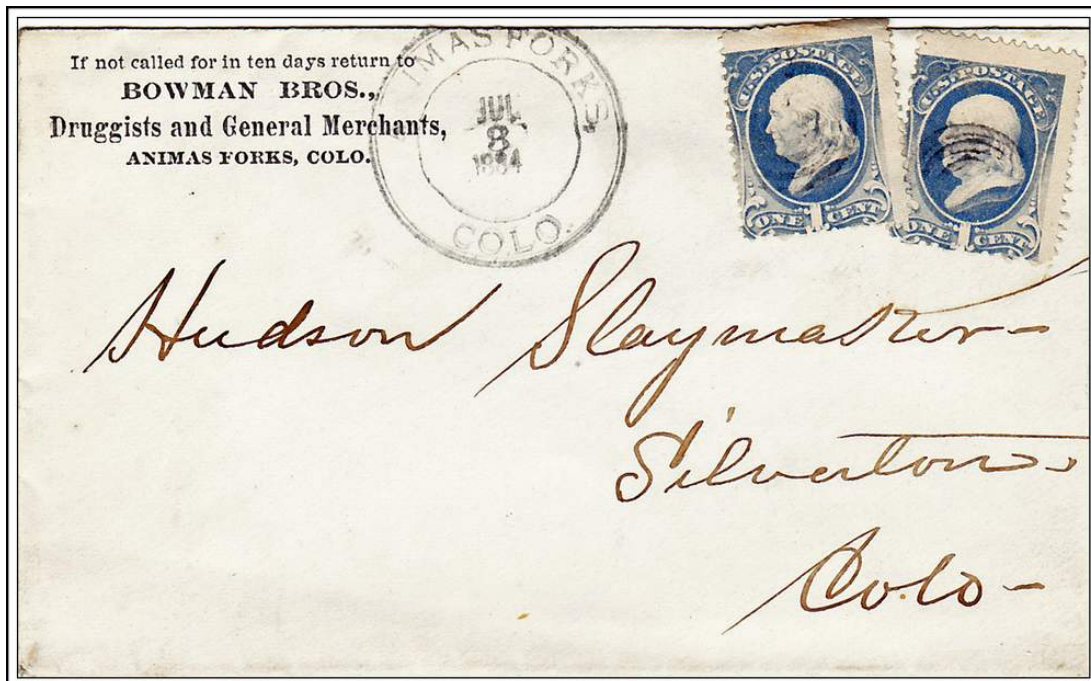 If not called for in ten days return to
BOWMAN BROS.,
Druggists and General Merchants,
ANIMAS FORKS, COLO.
ANIMAS FORKS,
JUL
8
1884
COLO.
U.S. POSTAGE
ONE 1 CENT
U.S. POSTAGE
ONE 1 CENT
Hudson Slaymaker-
Silverton,
Colo-